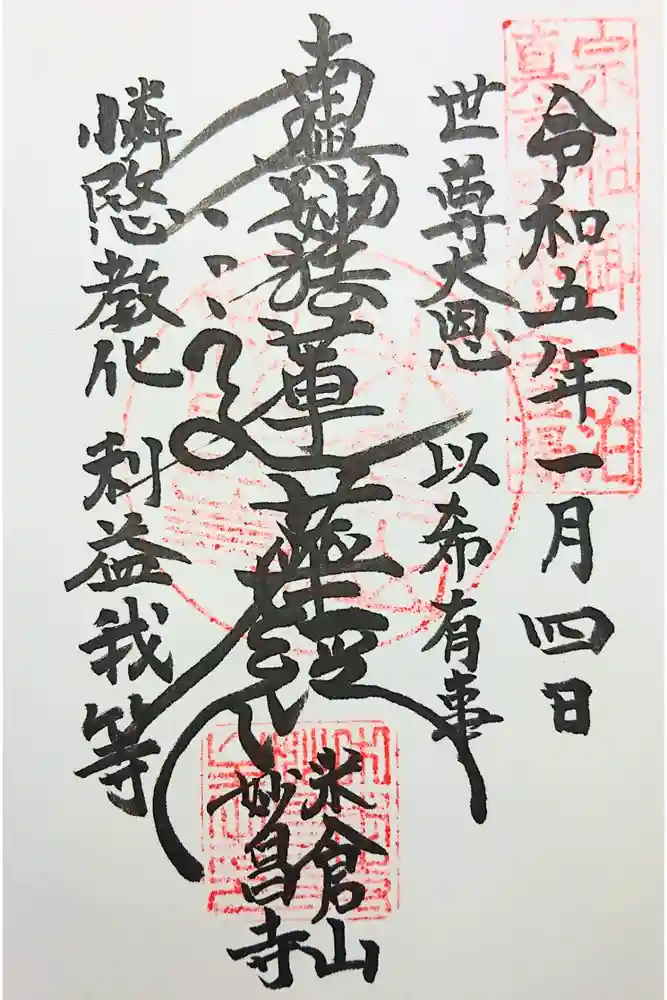 令和五年一月四日
世尊大恩 以希有事
南無妙法蓮華経
憐愍教化 利益我等
米倉山
妙昌寺
宗祖御一泊
真